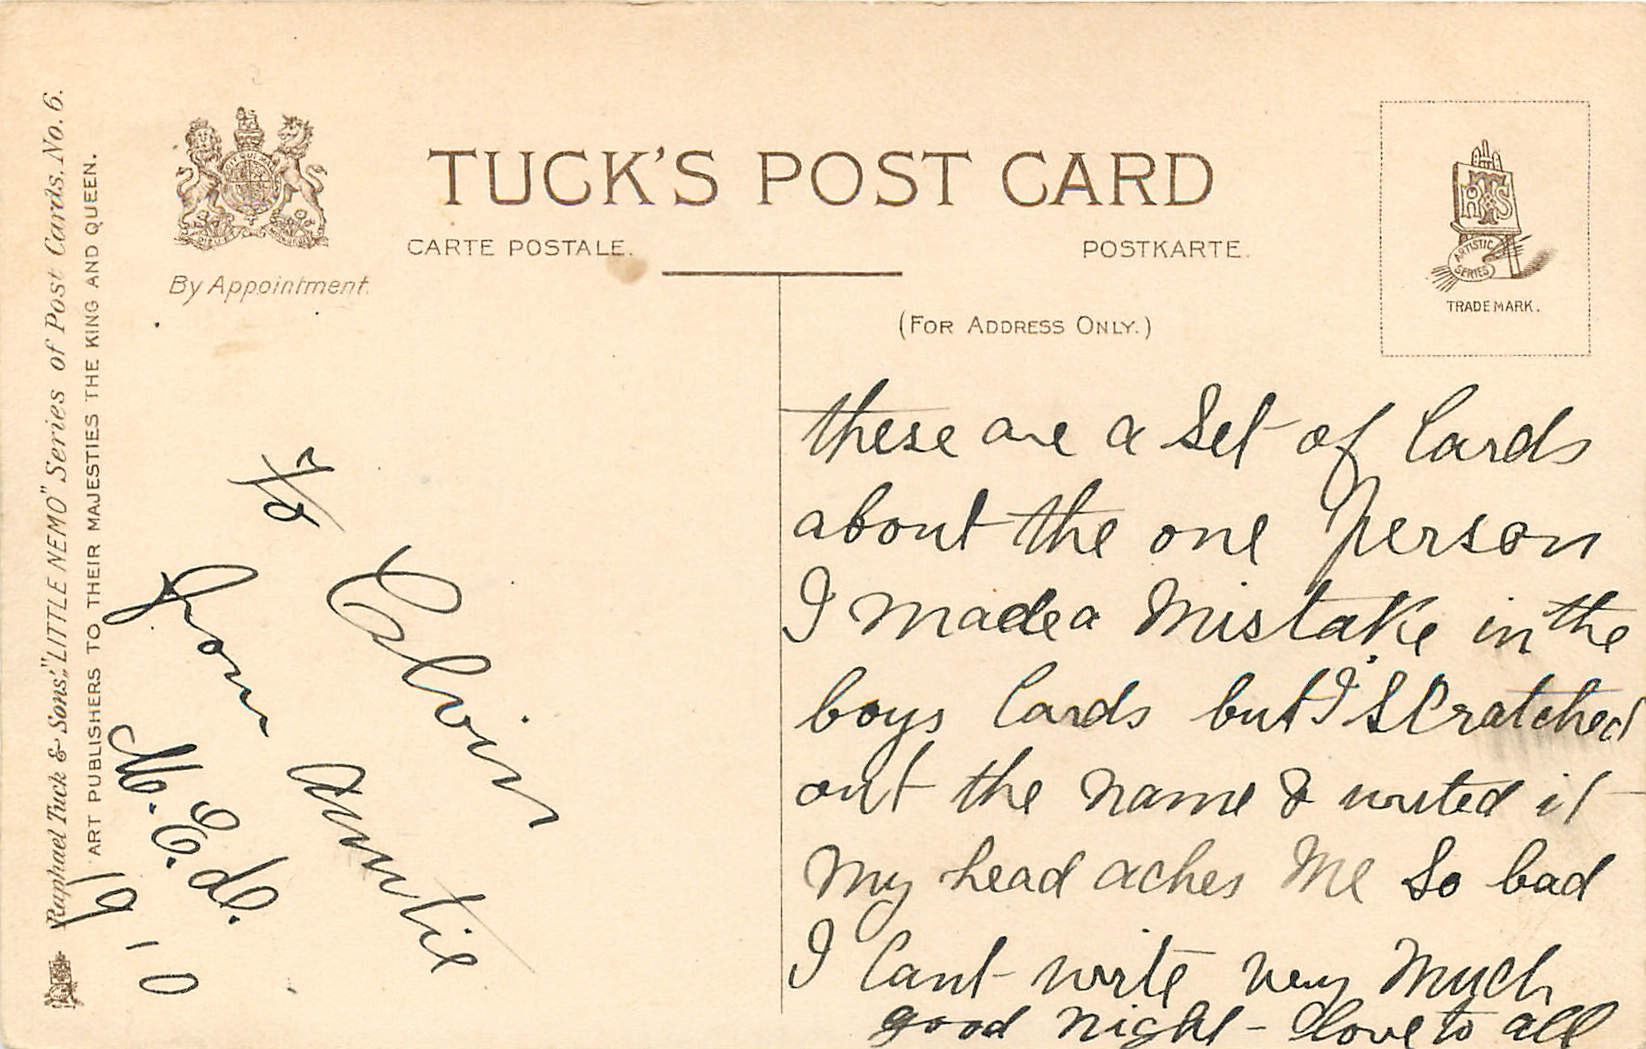 Raphael Tuck & Sons' "LITTLE NEMO" Series of Post Cards. No. 6.
ART PUBLISHERS TO THEIR MAJESTIES THE KING AND QUEEN.
By Appointment.
TUCK'S POST CARD
CARTE POSTALE.
POSTKARTE.
(FOR ADDRESS ONLY.)
ARTISTIC
SERIES
TRADE MARK.
To Elvin
from auntie
M. E. D.
1910
these are a Set of Cards
about the one person
I made a Mistake in the
boys Cards but I Scratched
out the name & writed it
My head aches Me So bad
I Cant write very Much
good night - Love to all